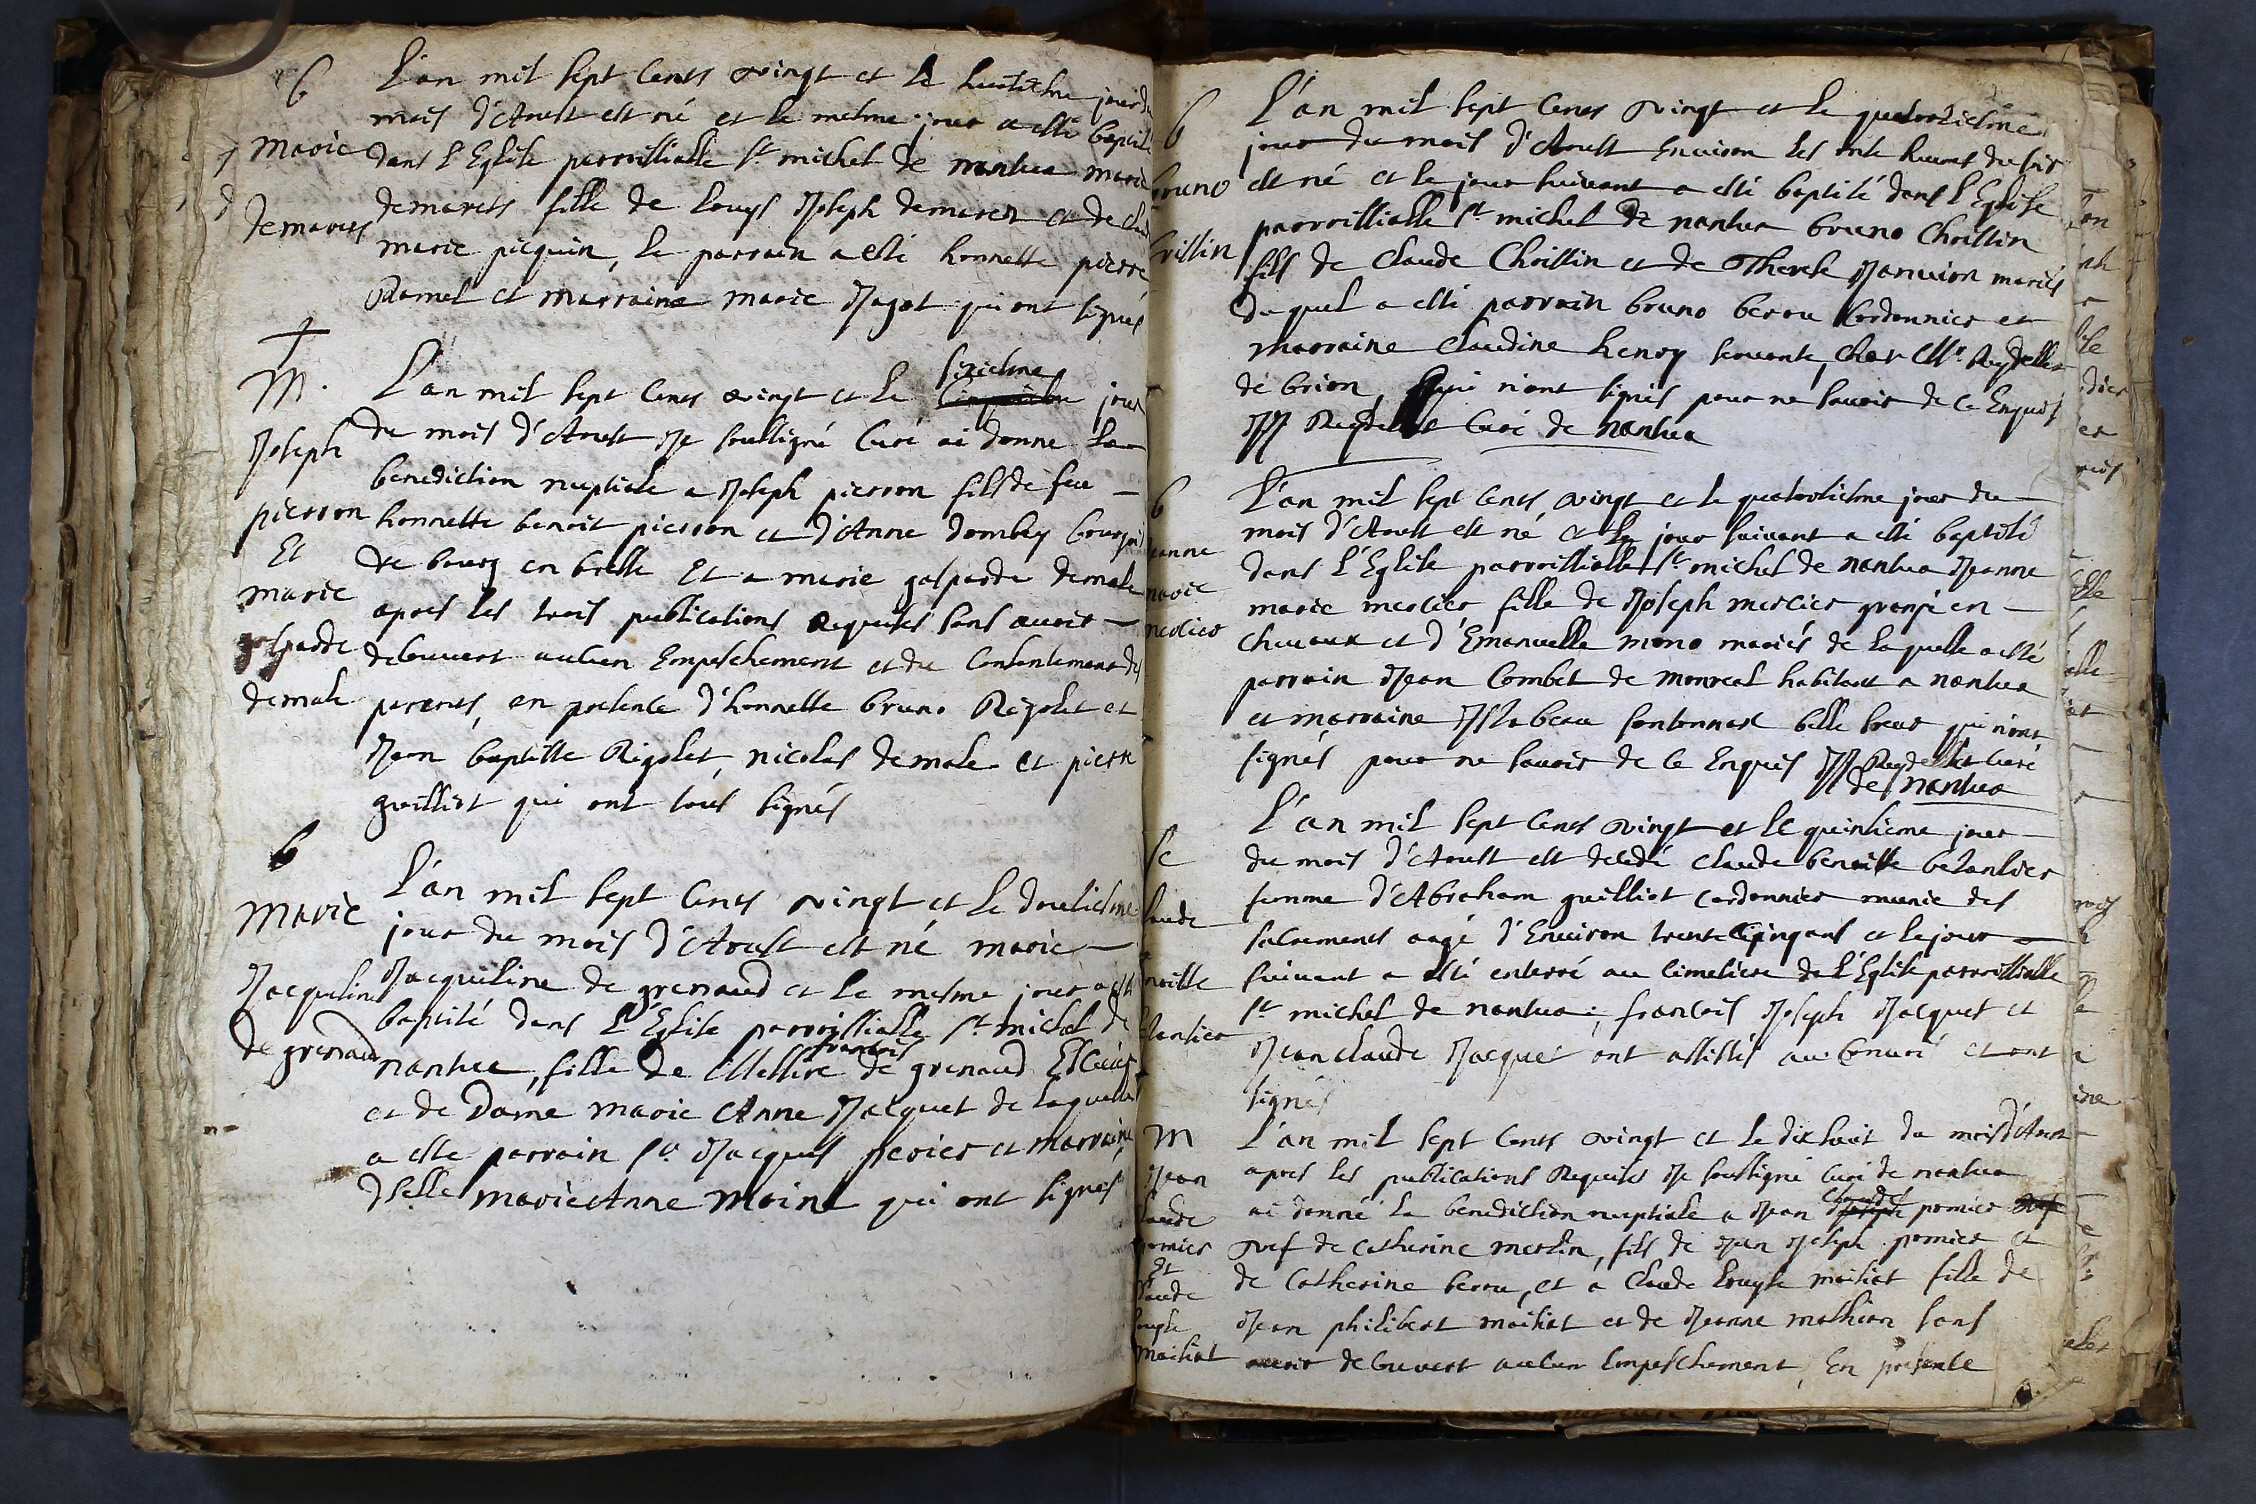 6
Marie
demarets
L'an mil sept cents vingt et le huitiesme jour du
mois d'Aoust est né et le mesme jour a esté baptisé
dans l'Eglise parroissialle St michel de nantua marie
demarets fille de Louys Joseph demarets et de
marie picquin, le parrain a esté honneste pierre
Ramel et marraine marie Jagot qui ont signés
M.
Joseph
pierron
Et
marie
gasparde
demale
L'an mil sept cents vingt et le sixiesme jour
du mois d'Aoust Je soussigné Curé ai donne la
benediction nuptiale a Joseph pierron fils de feu
honneste benoit pierron et d'Anne dombey bourgois
de bourg en bresse Et a marie gasparde demale
apres les trois publications Requises sans avoir
descouvert aulcun Empeschement et du Consentement des
parents, en presence d'honneste bruno Rigolet et
Jean baptiste Rigolet, nicolas demale et pierre
guilliot qui ont tous signés
6
Marie
Jacqueline
de grenaud
L'an mil sept cents vingt et le douziesme
jour du mois d'Aoust est né marie
Jacqueline de grenaud et le mesme jour a esté
baptisé dans l'Eglise parroissialle St michel de
nantua, fille de Messire françois de grenaud Escuier
et de Dame marie Anne Jacquet de laquelle
a este parrain Sr Jacques perier et marraine
dselle marie Anne Moine qui ont signés
6
bruno
Cristin
L'an mil sept cents vingt et le quatorziesme
jour du mois d'Aoust Environ les onze heures du soir
est né et le jour suivant a esté baptisé dans l'Eglise
parroissialle St michel de nantua bruno Christin
fils de Claude Christin et de Therese Janvion mariés
duquel a esté parrain bruno berrou Cordonnier et
marraine Claudine henry servante, chez Mr Reydellet
de brion, qui n'ont signés pour ne savoir de ce Enquis
JJ Reydellet Curé de nantua
6
Jeanne
marie
mercier
L'an mil sept cents vingt et le quatorziesme jour du
mois d'Aoust est né et le jour suivant a esté baptisé
dans l'Eglise parroissialle St michel de nantua Jeanne
marie mercier fille de Joseph mercier granger en
chevaux et d'Emanuelle mono mariés de laquelle a esté
parrain Jean Combet de monreal habitant a nantua
et marraine Isabeau fontannet belle soeur qui n'ont
signés pour ne savoir de ce Enquis JJ Reydellet Curé
de nantua
Claude
benoitte
L'an mil sept cents vingt et le quinzieme jour
du mois d'Aoust est decedé Claude benoitte betantier
femme d'Abraham guilliot cordonnier munie des
sacrements aagé d'Environ trente cinq ans et le jour
suivant a esté enterré au cimetiere de l'Eglise parroissialle
St michel de nantua; françois Joseph Jacquet et
Jean claude Jacquet ont assistés au Convoi et ont
signés
M
Jean
Claude
pomier
Et
Claude
Louyse
Maissiat
L'an mil sept cents vingt et le dix huit du mois d'Aoust
apres les publications Requises Je soussigné Curé de nantua
ai donné la benediction nuptiale a Jean Claude pomier
vef de Catherine merlin, fils de Jean Joseph pomier et
de Catherine berrou, et a Claude Louyse maissiat fille de
Jean philibert maissiat et de Jeanne mathieu sans
avoir descouvert aulcun Empeschement, En presence